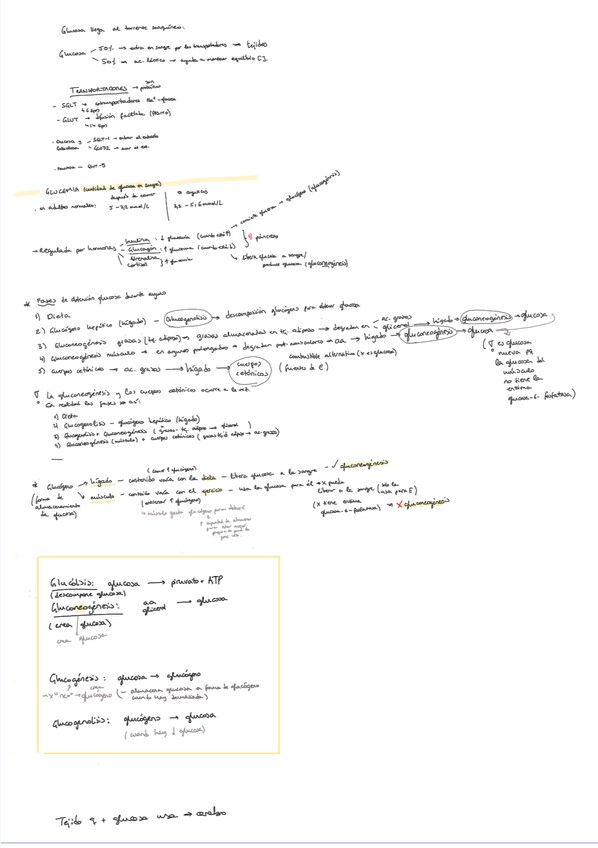 Glucosa llega al torrente sanguíneo:
Glucosa 50% → entra en sangre por los transportadores → tejidos
50% en ac. láctico → ayuda a mantener equilibrio
TRANSPORTADORES → son proteínas
- SGLT → cotransportadores Na+-glucosa
- GLUT → difusión facilitada
- Glucosa y Galactosa SGLT-1 → entrar al
GLUT2 →
- Fructosa — GLUT-5
GLUCEMIA (cantidad de glucosa en sangre)
después de comer | o ayunas
- en adultos normales: 5 - 7,2 mmol/L | 3,3 - 5,6 mmol/L
→ convierte glucosa → glucógeno (glucogénesis)
→ Regulada por hormonas - Insulina = ↓ glucemia (cuando está ↑)
- Glucagón = ↑ glucemia (cuando está ↓) páncreas
- Adrenalina
- Cortisol } ↑ glucemia
↳ libera glucosa a sangre/
produce glucosa (gluconeogénesis)
* Fases de obtención glucosa durante ayuno
1) Dieta
2) Glucógeno hepático (hígado) - Glucogenolisis → descomposición glucógeno para obtener glucosa
3) Gluconeogénesis grasas (tej. adiposo) → grasas almacenadas en tej. adiposo → degradan en ac. grasos / glicerol → hígado → gluconeogénesis → glucosa
4) Gluconeogénesis músculo → en ayunos prolongados → degradan prot. musculares → aa → hígado → gluconeogénesis → glucosa
5) cuerpos cetónicos → ac. grasos → hígado → cuerpos cetónicos
combustible alternativo (x es glucosa)
(fuentes de E)
(∇ es glucosa
nueva pq
la glucosa del
músculo
no tiene la
enzima
glucosa-6-fosfatasa)
∇ La gluconeogénesis y los cuerpos cetónicos ocurre a la vez.
En realidad las fases son así:
1) Dieta
2) Glucogenolisis - glucógeno hepático (hígado)
3) Glucogenolisis + Gluconeogénesis (grasas - tej. adiposo → glicerol)
4) Gluconeogénesis (músculo) + cuerpos cetónicos (grasas tej. adiposo → ac. grasos)
* Glucógeno → hígado - contenido varía con la dieta - libera glucosa a la sangre → ✓ gluconeogénesis
(comer ↑ glucógeno)
(forma de almacenamiento de glucosa) → músculo - contenido varía con el ejercicio - usa la glucosa para él → x puede liberar a la sangre (solo la usa para E)
(entrenar ↑ glucógeno)
(x tiene enzima glucosa-6-fosfatasa) → X gluconeogénesis
↳ músculo gasta glucógeno para obtener E
↑ capacidad de almacenar
Glucólisis: glucosa → piruvato + ATP
(descompone glucosa)
Gluconeogénesis: aa glicerol → glucosa
(crea glucosa)
crea glucosa
Glucogénesis: glucosa → glucógeno
→ x "neo" → crea glucógeno (- almacena glucosa en forma de glucógeno cuando hay demasiada)
Glucogenolisis: glucógeno → glucosa
(cuando hay ↓ glucosa)
Tejido q + glucosa usa → cerebro